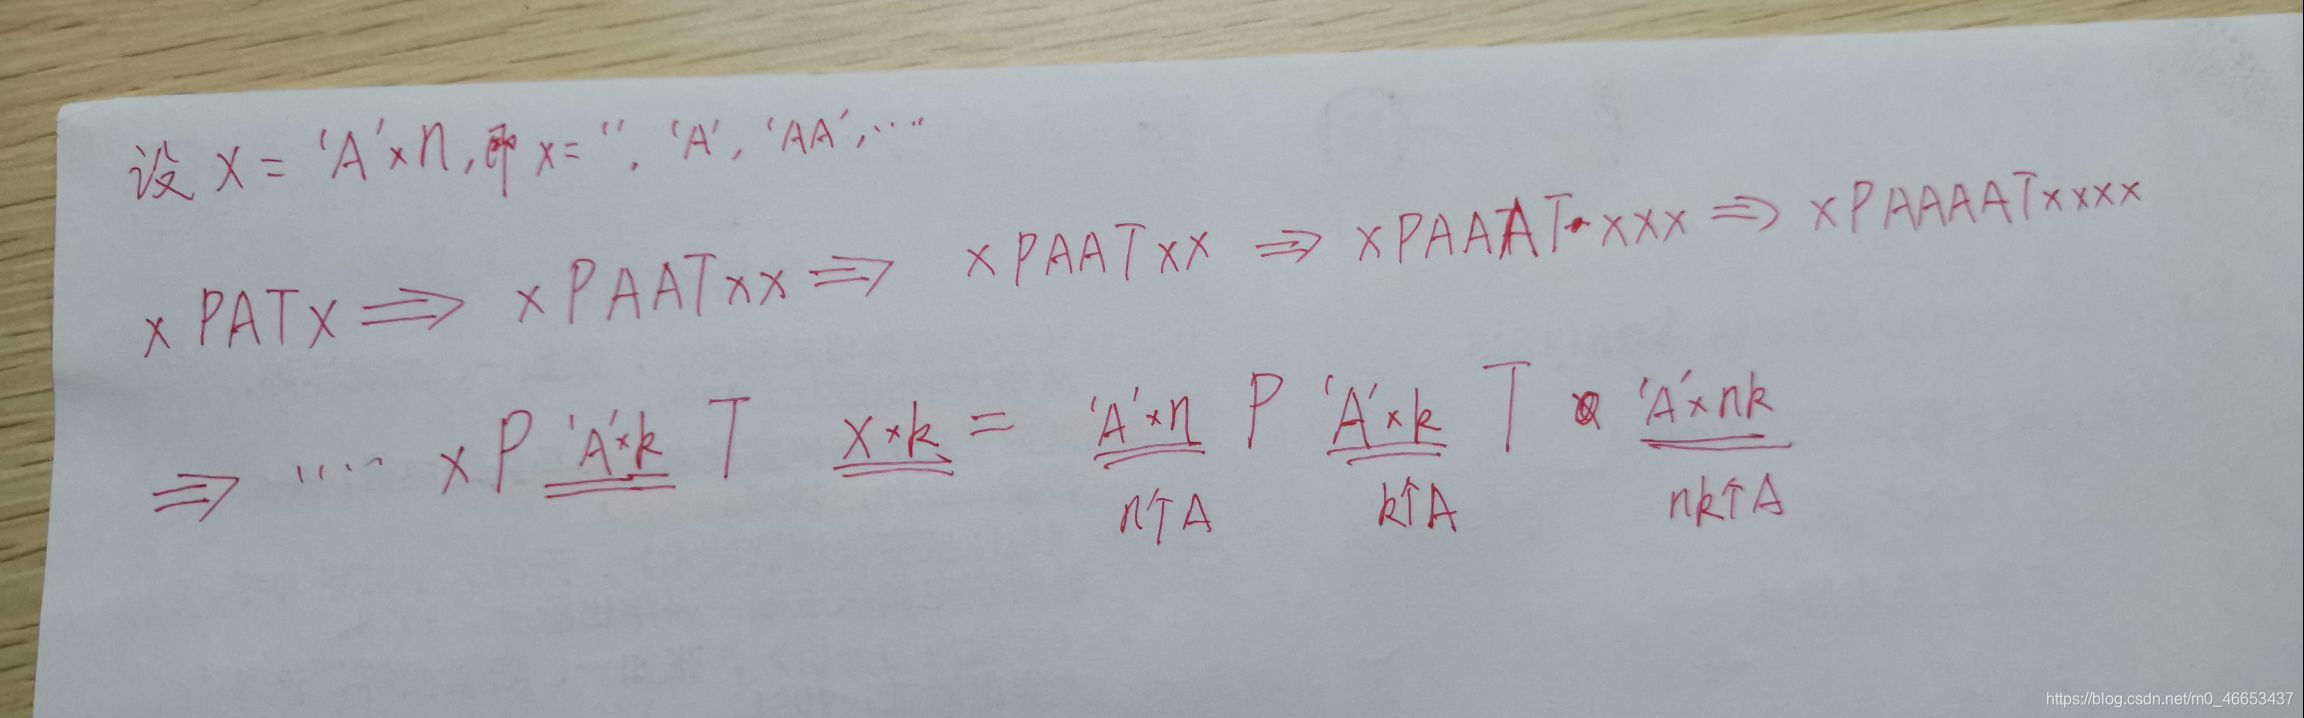 设 x = 'A'×n,即 x= '', 'A', 'AA',……
xPATx ⇒ xPAATxx ⇒ xPAATxx ⇒ xPAAATxxx ⇒ xPAAAATxxxx
⇒ …… xP 'A'×k T x×k = 'A'×n P 'A'×k T 'A'×nk
n个A k个A nk个A
https://blog.csdn.net/m0_46653437